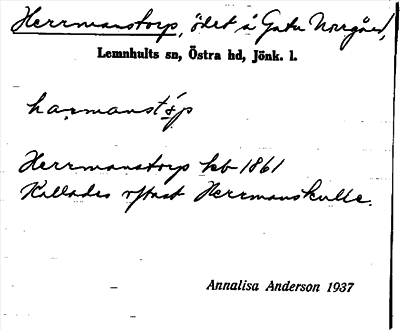 Herrmanstorp, ödet å Gatu Norrgård,
Lemnhults sn, Östra hd, Jönk. l.
harmanstp
Herrmanstorp kb 1861
Kallades oftast Herrmanskulle.
Annalisa Anderson 1937